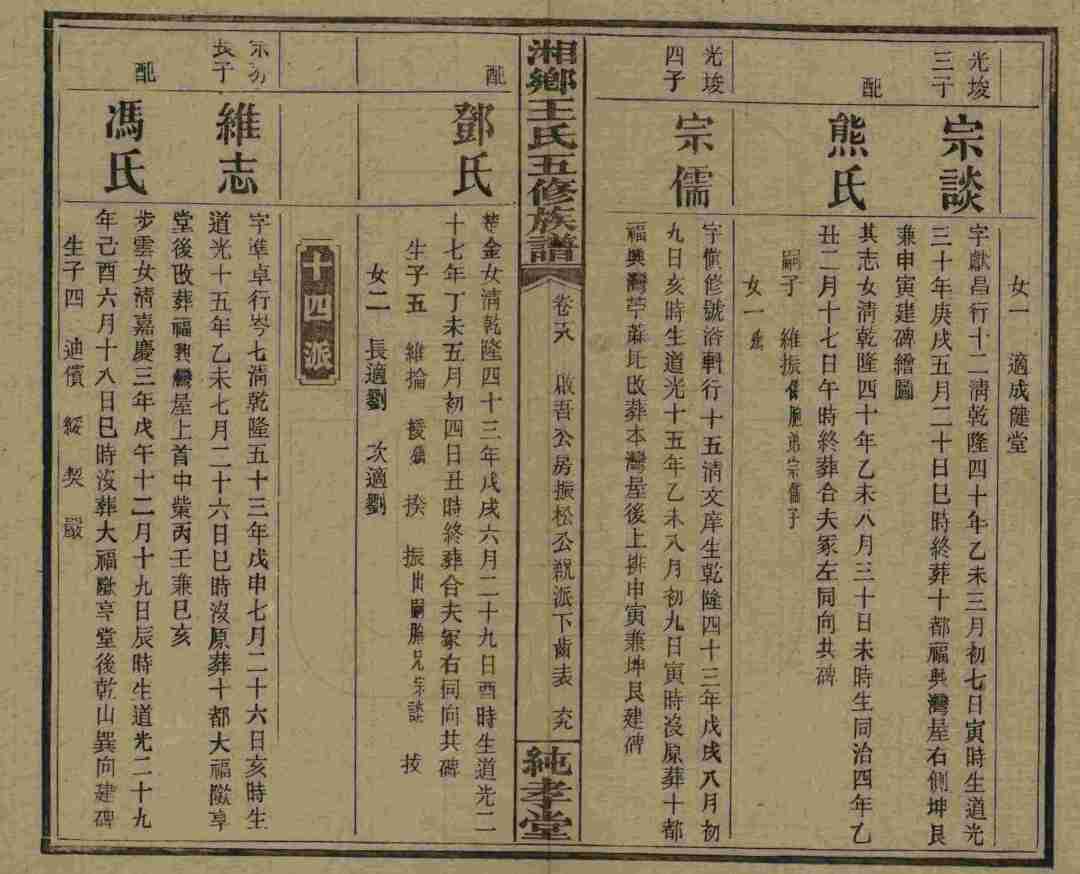 女一 適成健堂
光埈三子
宗談
字獻昌行十二清乾隆四十年乙未三月初七日寅時生道光
三十年庚戌五月二十日巳時終葬十都福興灣屋右側坤艮
兼申寅建碑繪圖
配
熊氏
其志女清乾隆四十年乙未八月三十日未時生同治四年乙
丑二月十七日午時終葬合夫冢左同向共碑
嗣子 維振 胞弟宗儒子
女一
光埈四子
宗儒
字慎修號浴軒行十五清文庠生乾隆四十三年戊戌八月初
九日亥時生道光十五年乙未八月初九日寅時沒原葬十都
福興灣苧蔴坵改葬本灣屋後上排申寅兼坤艮建碑
湘鄉王氏五修族譜
卷 啟吾公房振松公親派下齒表
純孝堂
配
鄧氏
金女清乾隆四十三年戊戌六月二十九日酉時生道光二
十七年丁未五月初四日丑時終葬合夫冢右同向共碑
生子五 維掄 揆 振出嗣胞兄宗談 技
女二 長適劉 次適劉
十四派
長子
維志
字準卓行岑七清乾隆五十三年戊申七月二十六日亥時生
道光十五年乙未七月二十六日巳時沒原葬十都大福歐享
堂後改葬福興灣屋上首中築丙壬兼巳亥
配
馮氏
步雲女清嘉慶三年戊午十二月十九日辰時生道光二十九
年己酉六月十八日巳時沒葬大福歐享堂後乾山巽向建碑
生子四 迪儐 綏 契 嚴